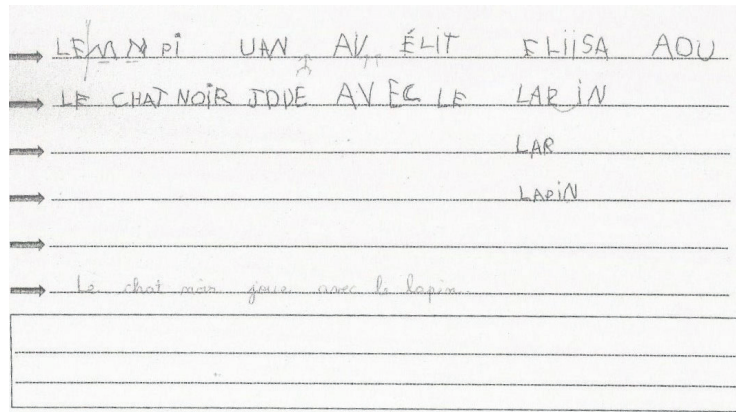 LE M N Pi UAN AV ÉLIT ELIISA AOU
LE CHAT NOiR JOUE AVEC LE LAPiN
LAR
LAPiN
Le chat noir joue avec le lapin.